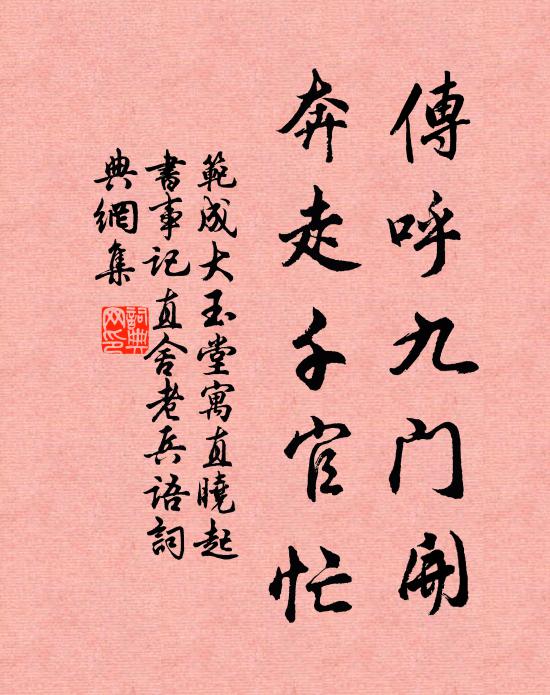 傳呼九门開
奔走千官忙
範成大玉堂寓直曉起
書事記直舍老兵語詞
典網集
詞典
网印